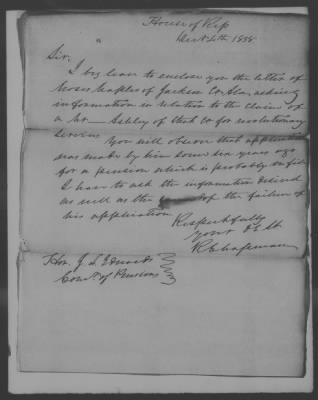 House of Rep
Sir,
I beg leave to enclose you the letter of
Moses Maples of Jackson Co Ala, asking
information in relation to the claim of
a Mr — Ashley of that Co for revolutionary
services You will observe that application
was made by him some six years ago
for a pension which is probably on file
I have to ask the information desired
as well as the of the failure of
his application
Respectfully
your Ob St
R Chapman
Hon. J L Edwards
Comr of Pensions